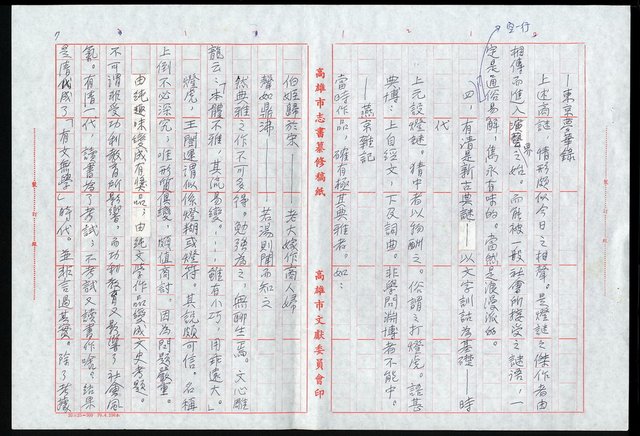 空一行
——東京夢華錄
上述商謎，情形頗似今日之相聲。是燈謎之傑作者由
相傳而進入演聲之始。而能被一般社會所接受之謎語，一
界
定是通俗易解，雋永有味的。當然是浪漫派的。
四、有清是新古典謎——以文字訓詁為基礎——時
代
上元設燈謎。猜中者以物酬之。俗謂之打燈虎。謎甚
典博，上自經文，下及詞曲。非學問淵博者不能中。
——燕京雜記
當時作品，確有極其典雅者。如：
高雄市志書纂修稿紙
高雄市文獻委員會印
伯姬歸於宋——老大嫁作商人婦
聲如鼎沸——若湯則聞而知之
然典雅之作不可多得。勉強為之，無聊生焉。文心雕
龍云：本體不雅，其流易變。……雖有小巧，用非遠大。」
燈虎，王闓運謂似係燈糊或燈符。其說頗可信。名稱
上倒不必深究，唯形質俱變，頗值商討。因為問題嚴重。
由純趣味變成有獎品；由純文學作品變成文史考題。
不可謂非受功利教育所影響，而功利教育又影響了社會風
氣。有清一代，讀書為了考試；不考試又讀書作啥。結果
是清代成了「有文無學」時代。並非言過甚實。除了考據